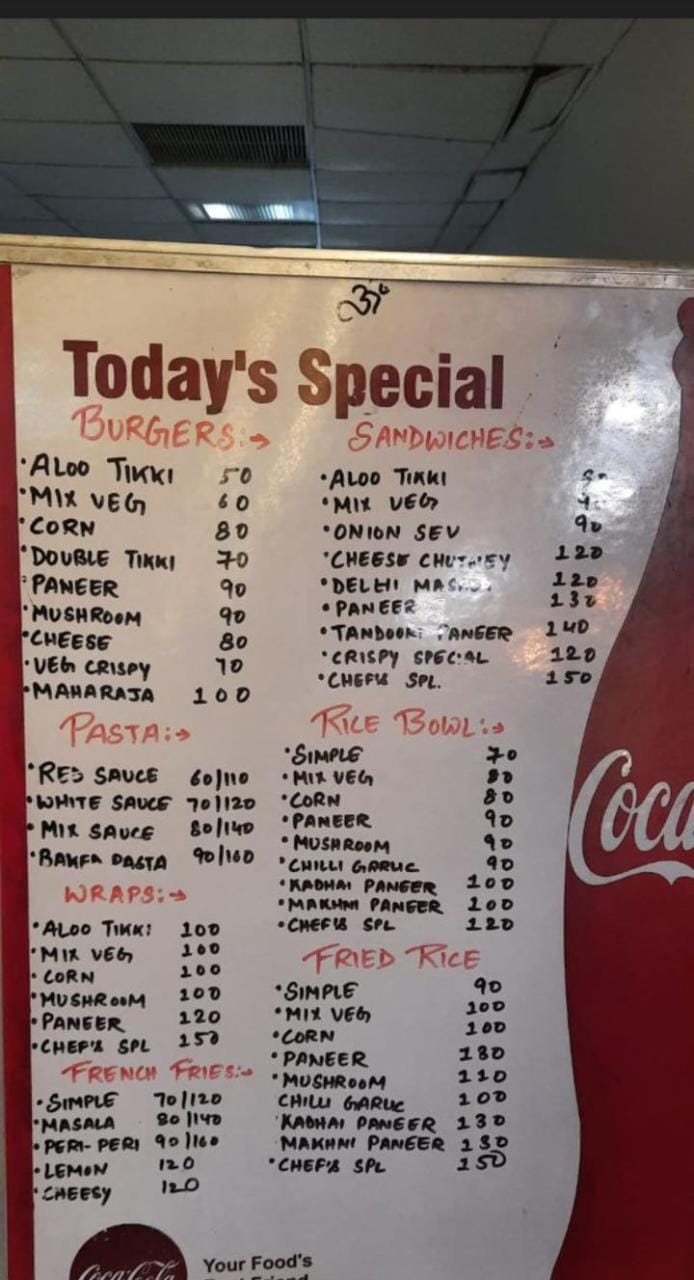 Today's Special
BURGERS:→
·ALOO TIKKI 50
·MIX VEG 60
·CORN 80
·DOUBLE TIKKI 70
·PANEER 90
·MUSHROOM 90
·CHEESE 80
·VEG CRISPY 70
·MAHARAJA 100
PASTA:→
·RED SAUCE 60/110
·WHITE SAUCE 70/120
·MIX SAUCE 80/140
·BAKED PASTA 90/160
WRAPS:→
·ALOO TIKKI 100
·MIX VEG 100
·CORN 100
·MUSHROOM 100
·PANEER 120
·CHEF'S SPL 150
FRENCH FRIES:→
·SIMPLE 70/120
·MASALA 80/140
·PERI-PERI 90/160
·LEMON 120
·CHEESY 120
SANDWICHES:→
·ALOO TIKKI
·MIX VEG
·ONION SEV 90
·CHEESE CHUTNEY 120
·DELHI MASALA 120
·PANEER 130
·TANDOORI PANEER 140
·CRISPY SPECIAL 120
·CHEF'S SPL. 150
RICE BOWL:→
·SIMPLE 70
·MIX VEG 80
·CORN 80
·PANEER 90
·MUSHROOM 90
·CHILLI GARLIC 90
·KADHAI PANEER 100
·MAKHNI PANEER 100
·CHEF'S SPL 120
FRIED RICE
·SIMPLE 90
·MIX VEG 100
·CORN 100
·PANEER 130
·MUSHROOM 110
CHILLI GARLIC 100
·KADHAI PANEER 130
MAKHNI PANEER 130
·CHEF'S SPL 150
Coca
Coca-Cola
Your Food's